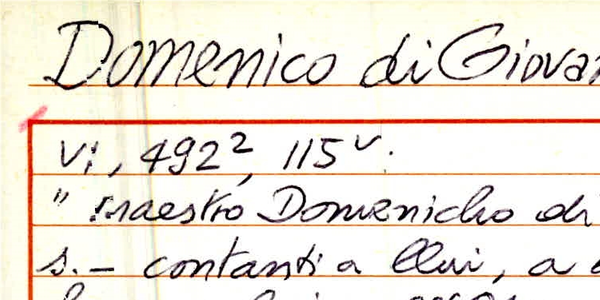 Domenico di Giovan
VI, 492², 115ᵛ.
" maestro Domenicho di
s. – contanti a llui, a